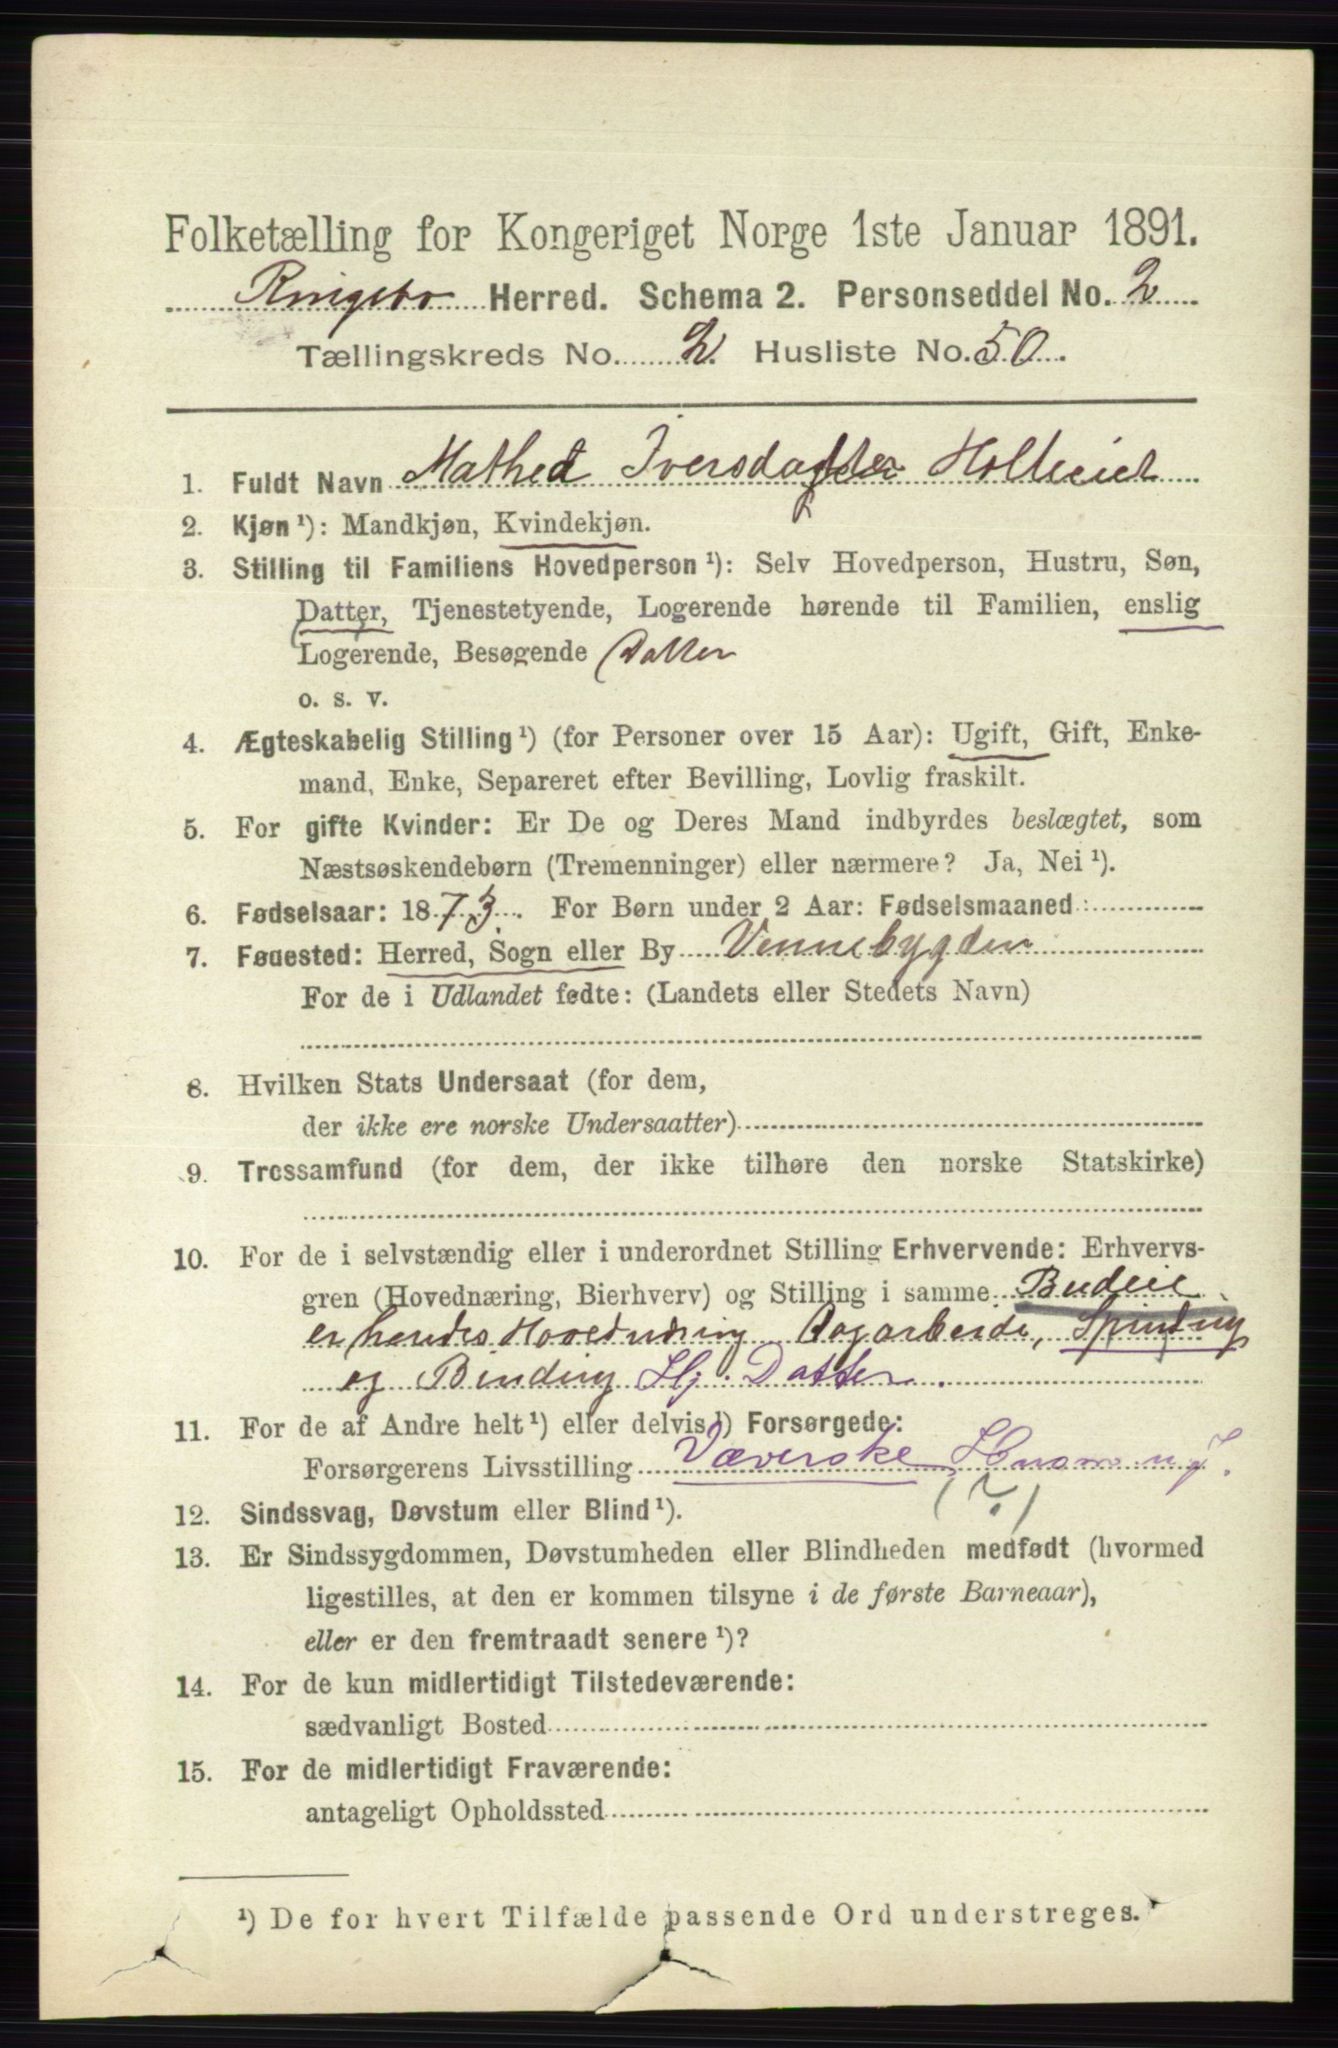 Folketælling for Kongeriget Norge 1ste Januar 1891.
Ringebo Herred. Schema 2. Personseddel No. 2
Tællingskreds No. 2. Husliste No. 50.
1. Fuldt Navn Mathea Iversdatter Holleiet
2. Kjøn ¹): Mandkjøn, Kvindekjøn.
3. Stilling til Familiens Hovedperson ¹): Selv Hovedperson, Hustru, Søn,
Datter, Tjenestetyende, Logerende hørende til Familien, enslig
Logerende, Besøgende Datter
o. s. v.
4. Ægteskabelig Stilling ¹) (for Personer over 15 Aar): Ugift, Gift, Enke-
mand, Enke, Separeret efter Bevilling, Lovlig fraskilt.
5. For gifte Kvinder: Er De og Deres Mand indbyrdes beslægtet, som
Næstsøskendebørn (Tremenninger) eller nærmere? Ja, Nei ¹).
6. Fødselsaar: 1873. For Børn under 2 Aar: Fødselsmaaned:
7. Fødested: Herred, Sogn eller By Vennebygden
For de i Udlandet fødte: (Landets eller Stedets Navn)
8. Hvilken Stats Undersaat (for dem,
der ikke ere norske Undersaatter)
9. Trossamfund (for dem, der ikke tilhøre den norske Statskirke)
10. For de i selvstændig eller i underordnet Stilling Erhvervende: Erhvervs-
gren (Hovednæring, Bierhverv) og Stilling i samme Budeie
er hendes Hovednæring Dagarbeide, Spinding
og Binding Hj. Datter.
11. For de af Andre helt ¹) eller delvis ¹) Forsørgede:
Forsørgerens Livsstilling Væverske Husm. m J.
(?)
12. Sindssvag, Døvstum eller Blind ¹).
13. Er Sindssygdommen, Døvstumheden eller Blindheden medfødt (hvormed
ligestilles, at den er kommen tilsyne i de første Barneaar),
eller er den fremtraadt senere ¹)?
14. For de kun midlertidigt Tilstedeværende:
sædvanligt Bosted
15. For de midlertidigt Fraværende:
antageligt Opholdssted
¹) De for hvert Tilfælde passende Ord understreges.